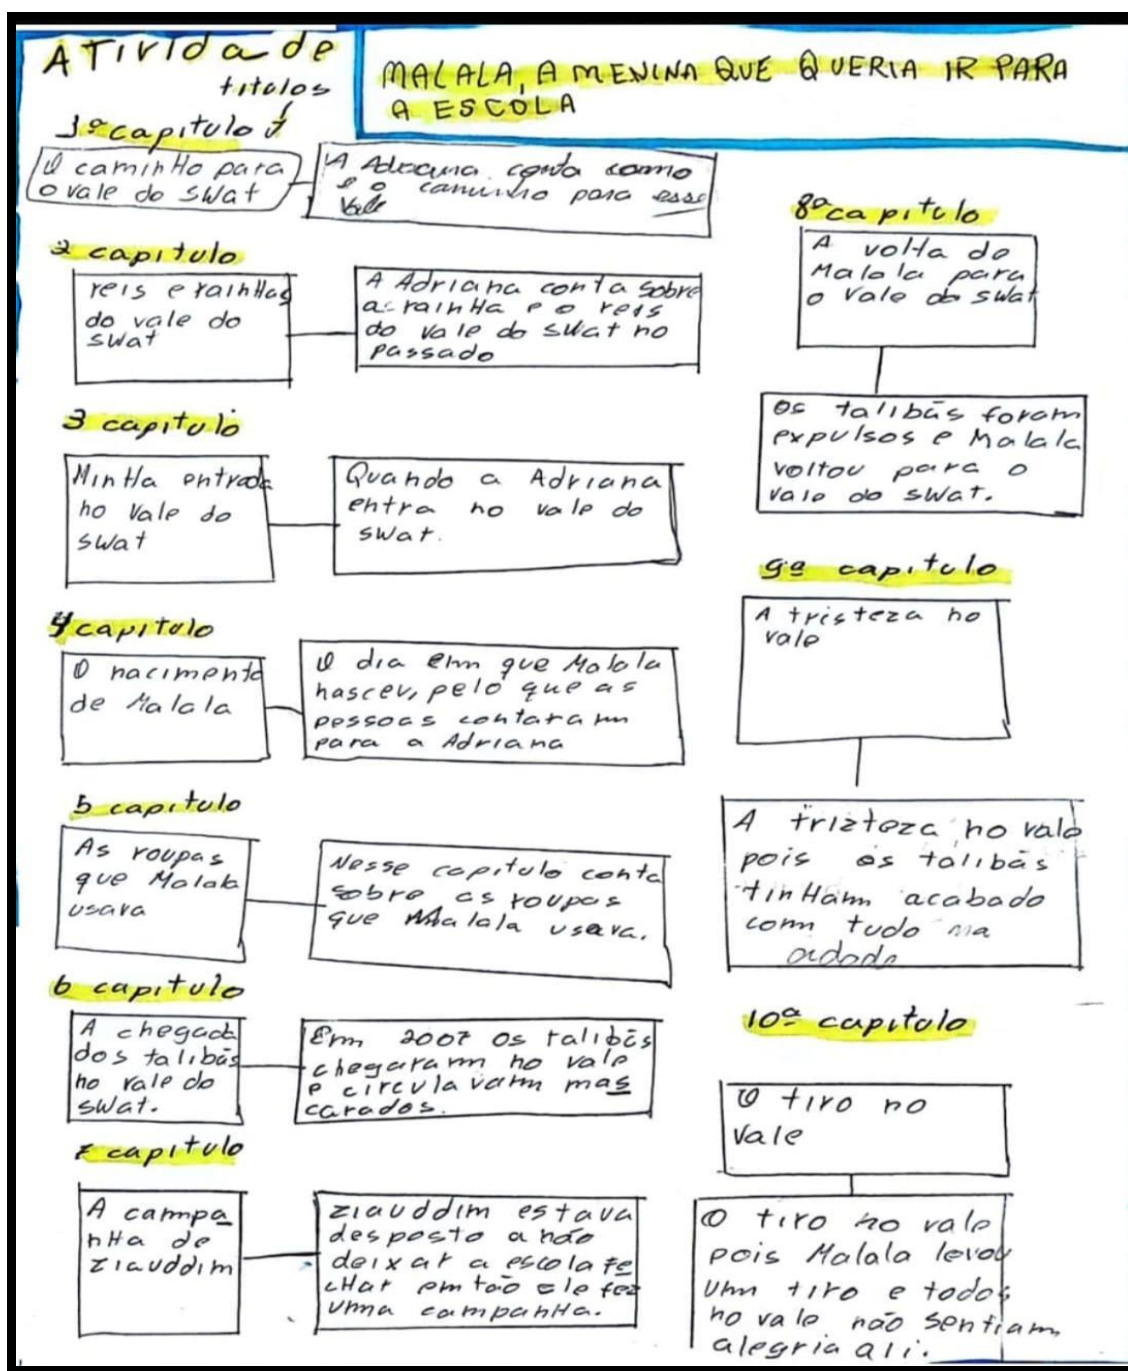 ATIVIDADE
titulos
MALALA, A MENINA QUE QUERIA IR PARA
A ESCOLA
1º capitulo
O caminHo para
o vale do swat
A Adriana conta como
é o caminho para esse
Vale
2 capitulo
reis e rainHas
do vale do
swat
A Adriana conta sobre
as rainHa e o reis
do vale do swat no
passado
3 capitulo
MinHa entrada
no vale do
swat
Quando a Adriana
entra no vale do
swat.
4 capitulo
O nacimento
de Malala
O dia em que Malala
nasceu, pelo que as
pessoas contaram
para a Adriana
5 capitulo
As roupas
que Malala
usava
Nesse capitulo conta
sobre as roupas
que Malala usava.
6 capitulo
A chegada
dos talibãs
no vale do
swat.
Em 2007 os talibãs
chegaram no vale
e circulavam mas
carados.
7 capitulo
A campa
nHa de
ziauddim
ziauddim estava
desposto a não
deixar a escola fe
cHar emtão ele fez
uma campanHa.
8º capitulo
A volta de
Malala para
o vale do swat
Os talibãs foram
expulsos e Malala
voltou para o
vale do swat.
9º capitulo
A tristeza no
vale
A trizteza no vale
pois os talibãs
tinHam acabado
com tudo na
cidade
10º capitulo
O tiro no
Vale
O tiro no vale
pois Malala levou
um tiro e todos
no vale não sentiam
alegria ali.